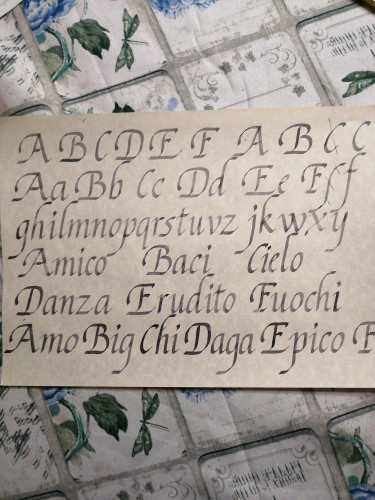 A B C D E F A B C C
Aa Bb Cc Dd Ee Fff
ghilmnopqrstuvz jkwxy
Amico Baci Cielo
Danza Erudito Fuochi
Amo Big Chi Daga Epico F